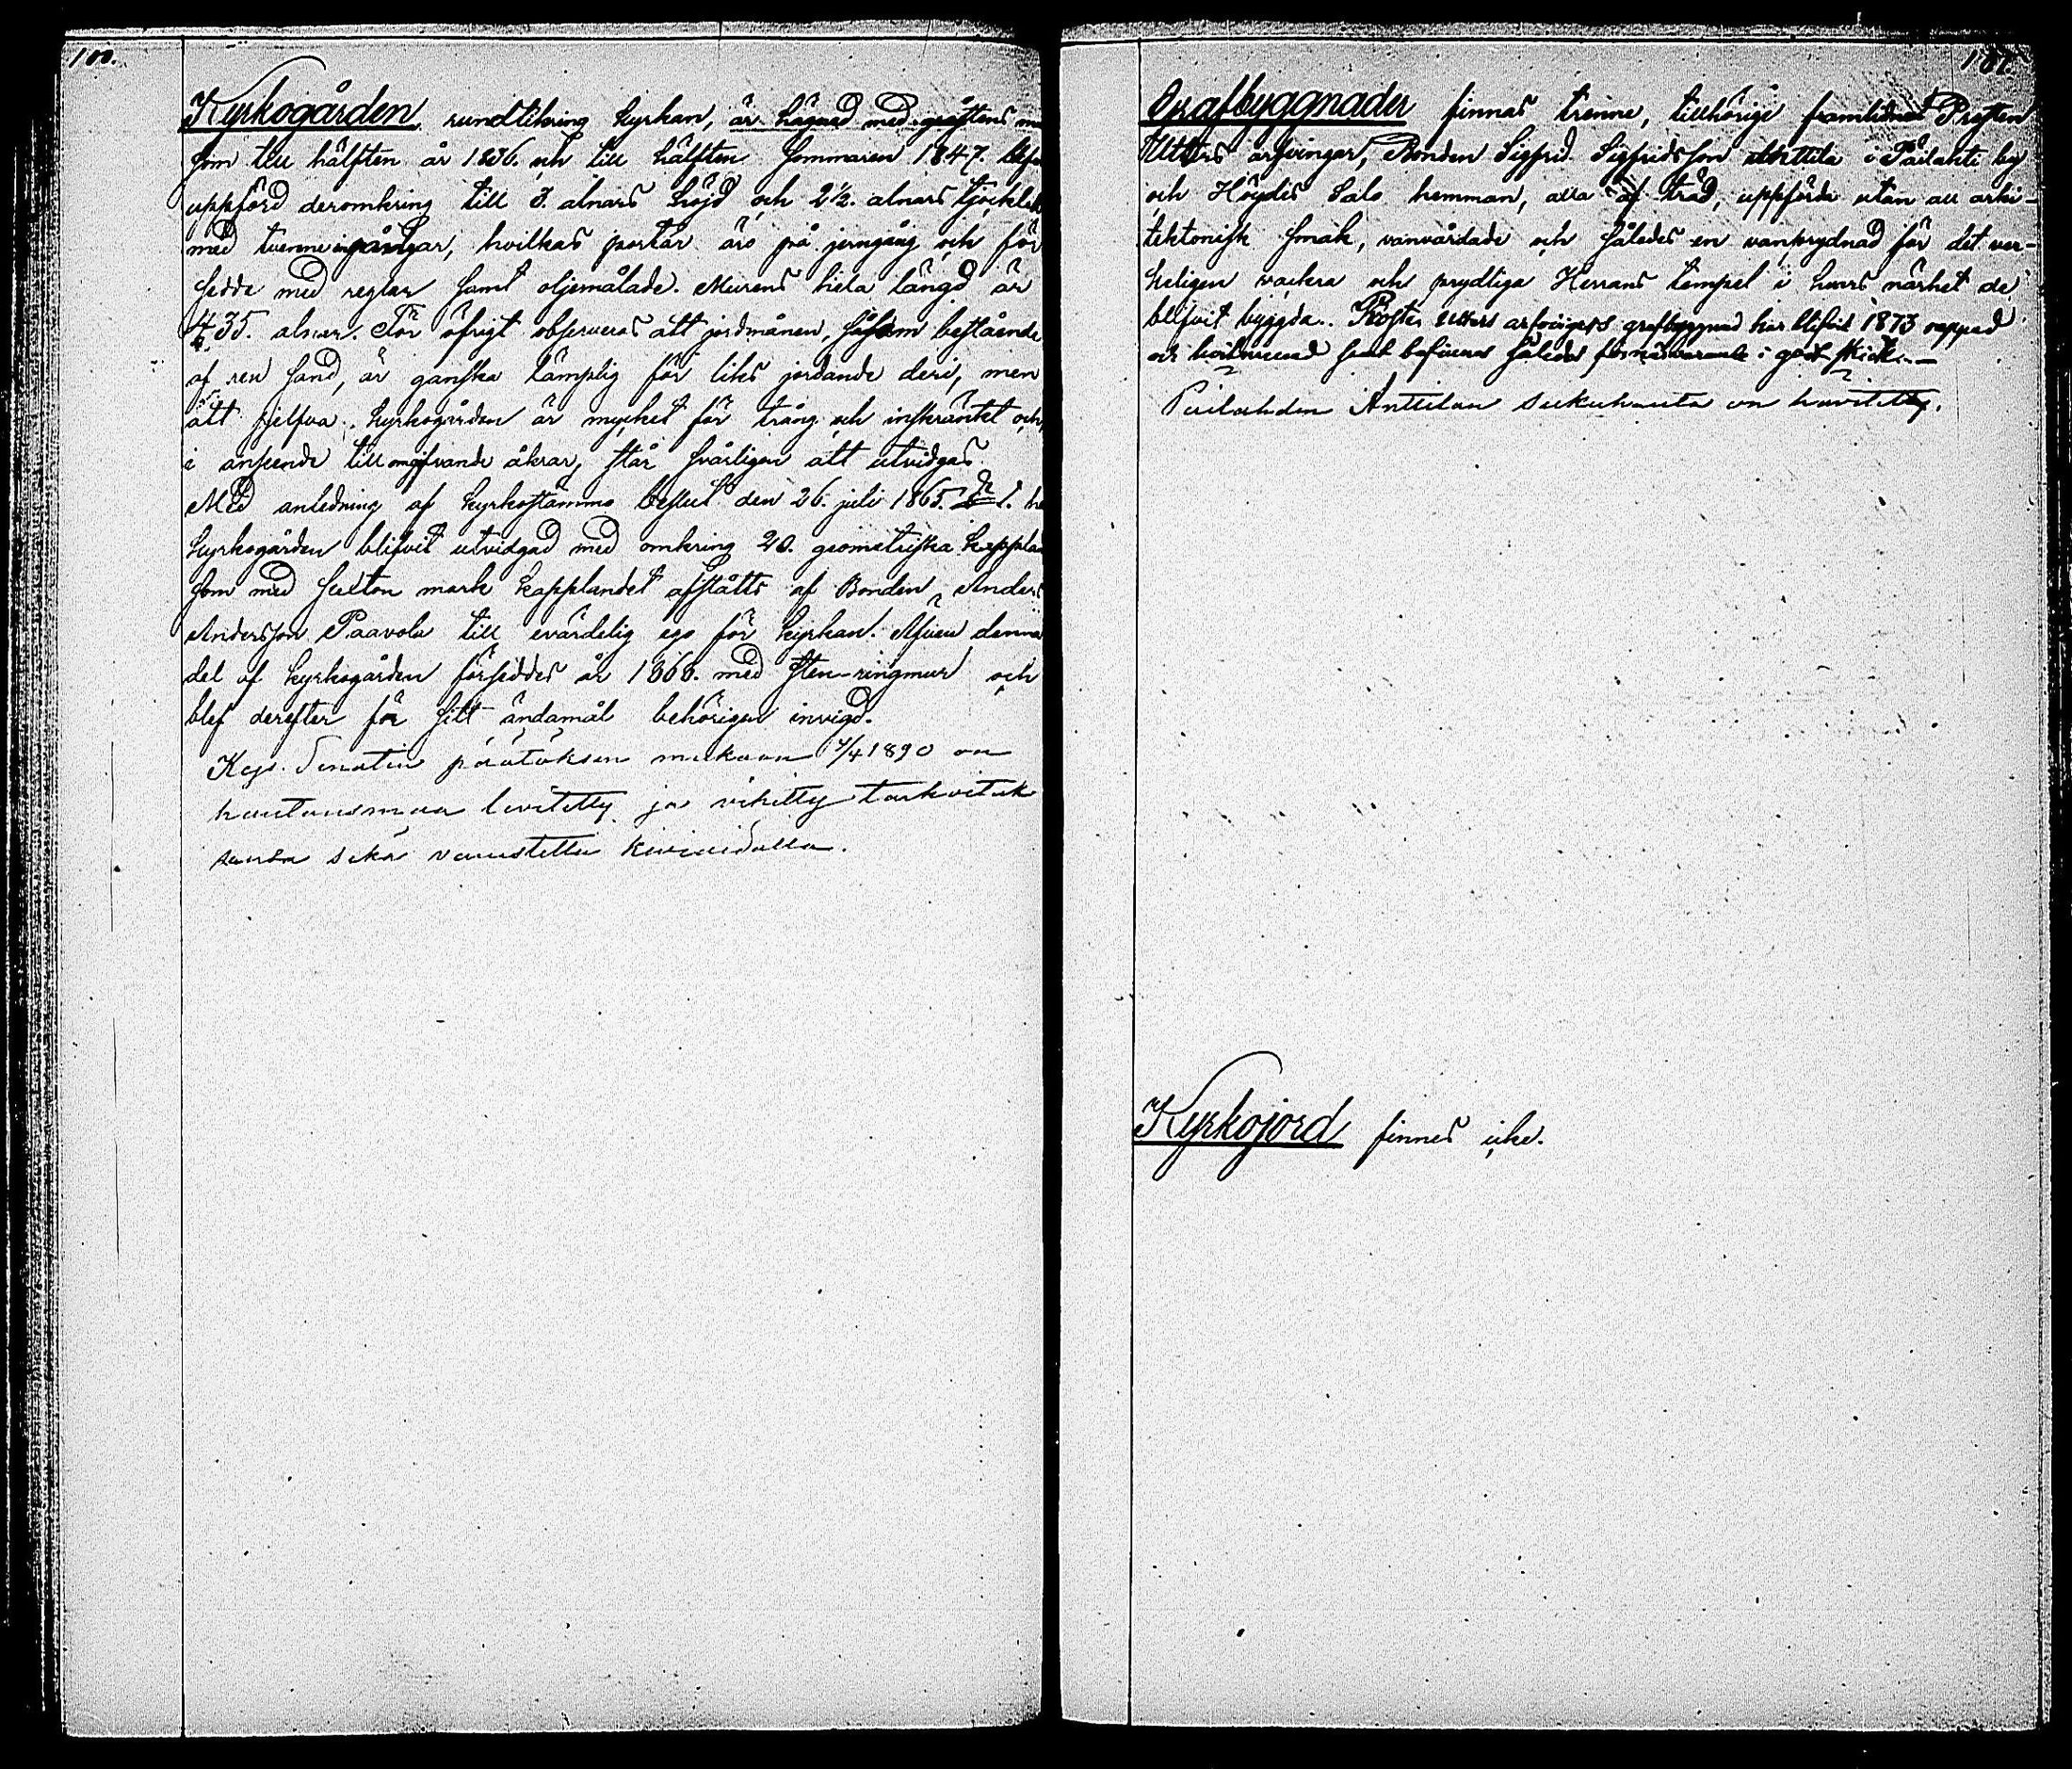 100.
Kyrkogården rundtikring kyrkan, är hägnad med gråstens
som till hälften år 1836. och till hälften sommaren 1847. blifv
uppförd deromkring till 3. alnars höjd och 2 1/2. alnars tjocklek
med tvenne ingångar, hvilkas portar äro på jerngång och för
sedde med reglar samt oljemålade. Murens hela längd är
435. alnar. För öfrigt observeras att jordmånen, såsom bestående
af ren sand, är ganska lämplig för liks jordande deri, men
att sjelfva kyrkogården är mycket för trång och inskränkt och,
i anseende till omgifvande åkrar, står svårligen att utvidgas.
Med anledning af kyrkostämmo beslut den 26. juli 1865. § 1. h
kyrkogården blifvit utvidgad med omkring 20. geometriska kappla
som med sexton mark kapplandet afståtts af Bonden Anders
Andersson Paavola till evärdelig ego för kyrkan. Äfven denna
del af kyrkogården förseddes år 1868. med sten-ringmur och
blef derefter för sitt ändamål behörigen invigd.
Kejs. Senatin päätöksen mukaan 1/4 1890 on
hautausmaa levitetty ja vihitty tarkoituk
seensa sekä varustettu kiviaidalla.
101.
Grafbyggnader finnas trenne, tillhörige framlidne Prosten
Utters arfvingar, Bonden Sigfrid Sigfridsson Anttila i Päilahti by
och Höydes Salo hemman, alla af träd, uppförde utan all arki-
tektonisk smak, vanvårdade och således en vanprydnad för det ver-
keligen vackra och prydliga Herrans tempel i hvars närhet de
blifvit byggda. Prosten Utters arfvingars grafbyggnad har blifvit 1873 rappad
och hvitmenad samt befinnes således förnärvarande i godt skick. —
Päilahden Anttilan sukuhauta on hävitetty.
Kyrkojord finnes icke.